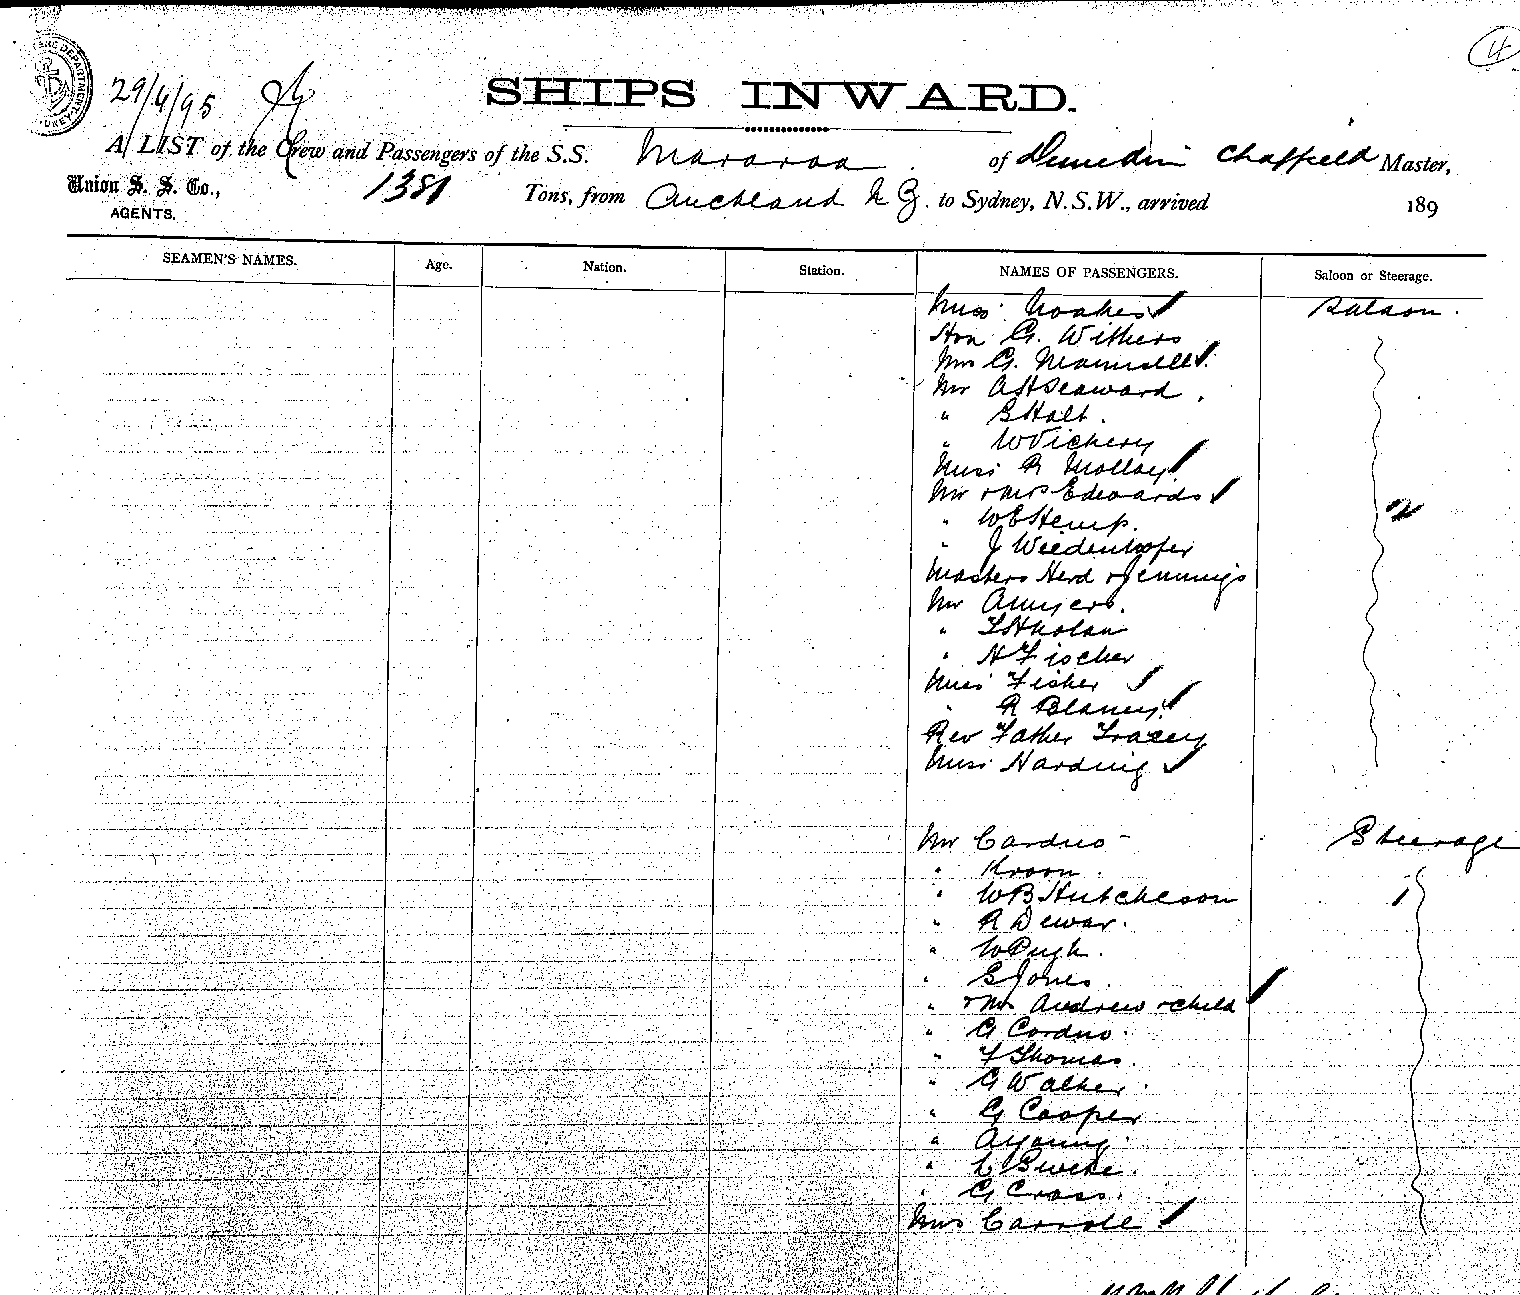 4
29/4/95
SHIPS INWARD.
A LIST of the Crew and Passengers of the S.S. Mararoa of Dunedin Chatfield Master,
Union S. S. Co., AGENTS. 1381 Tons, from Auckland N Z. to Sydney, N.S.W., arrived 189
SEAMEN'S NAMES. Age. Nation. Station. NAMES OF PASSENGERS. Saloon or Steerage.
Miss Noakes Saloon.
Hon G. Withers
Mrs G.
Mr A H Seaward
" G Holt.
" W Vickery
Miss R Molloy
Mr & Mrs Edwards
" W E Hemp.
" J Weidenhofer
Masters Herd & Jennings
Mr A Myers.
" T H Nolan
" H Fischer
Miss Fisher
" R Blaney
Rev Father Tracey
Miss Harding
Mr Carduo Steerage
" Kroon.
" W B Hutcheson 1
" R Dewar.
" W Pugh.
" G Jones.
" & Mrs Andrew & child
" G Corduo.
" F Thomas.
" G Walker.
" G Cooper
" A Young.
" G Cross.
Mrs Carroll